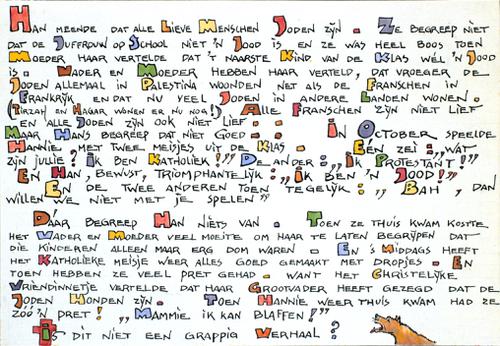 HAN MEENDE DAT ALLE LIEVE MENSCHEN JODEN ZŸN. ZE BEGREEP NIET
DAT DE JUFFROUW OP SCHOOL NIET 'N JOOD IS EN ZE WAS HEEL BOOS TOEN
MOEDER HAAR VERTELDE DAT 'T NAARSTE KIND VAN DE KLAS WÉL 'N JOOD
IS. VADER EN MOEDER HEBBEN HAAR VERTELD, DAT VROEGER DE
JODEN ALLEMAAL IN PALESTINA WOONDEN NET ALS DE FRANSCHEN IN
FRANKRŸK EN DAT NU VEEL JODEN IN ANDERE LANDEN WONEN.
(TIRZAH EN HAGAR WONEN ER NU NOG!) ALLE FRANSCHEN ZŸN NIET LIEF
EN ALLE JODEN ZŸN OOK NIET LIEF.
MAAR HANS BEGREEP DAT NIET GOED. IN OCTOBER SPEELDE
HANNIE MET TWEE MEISJES UIT DE KLAS. EÉN ZEI: „WAT
ZŸN JULLIE? IK BEN KATHOLIEK!” DE ANDER: „IK PROTESTANT!”
EN HAN, BEWUST, TRIOMPHANTELŸK: „IK BEN 'N JOOD!”
EN DE TWEE ANDEREN TOEN TEGELŸK: „BAH, DAN
WILLEN WE NIET MET JE SPELEN”
DAAR BEGREEP HAN NIETS VAN. TOEN ZE THUIS KWAM KOSTTE
HET VADER EN MOEDER VEEL MOEITE OM HAAR TE LATEN BEGRŸPEN DAT
DIE KINDEREN ALLEEN MAAR ERG DOM WAREN. EN 'S MIDDAGS HEEFT
HET KATHOLIEKE MEISJE WEER ALLES GOED GEMAAKT MET DROPJES. EN
TOEN HEBBEN ZE VEEL PRET GEHAD. WANT HET CHRISTELŸKE
VRIENDINNETJE VERTELDE DAT HAAR GROOTVADER HEEFT GEZEGD DAT DE
JODEN HONDEN ZŸN. TOEN HANNIE WEER THUIS KWAM HAD ZE
ZOO'N PRET! „MAMMIE IK KAN BLAFFEN!”
IS DIT NIET EEN GRAPPIG VERHAAL?